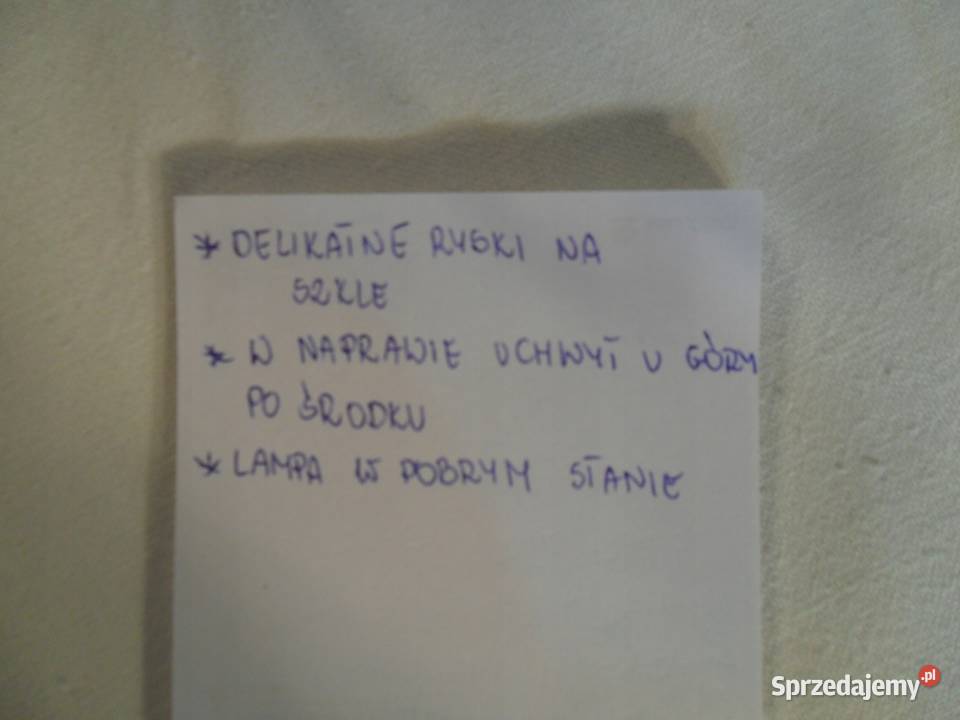 * DELIKATNE RYSKI NA
SZKLE
* W NAPRAWIE UCHWYT U GÓRY
PO ŚRODKU
* LAMPA W DOBRYM STANIE
Sprzedajemy.pl